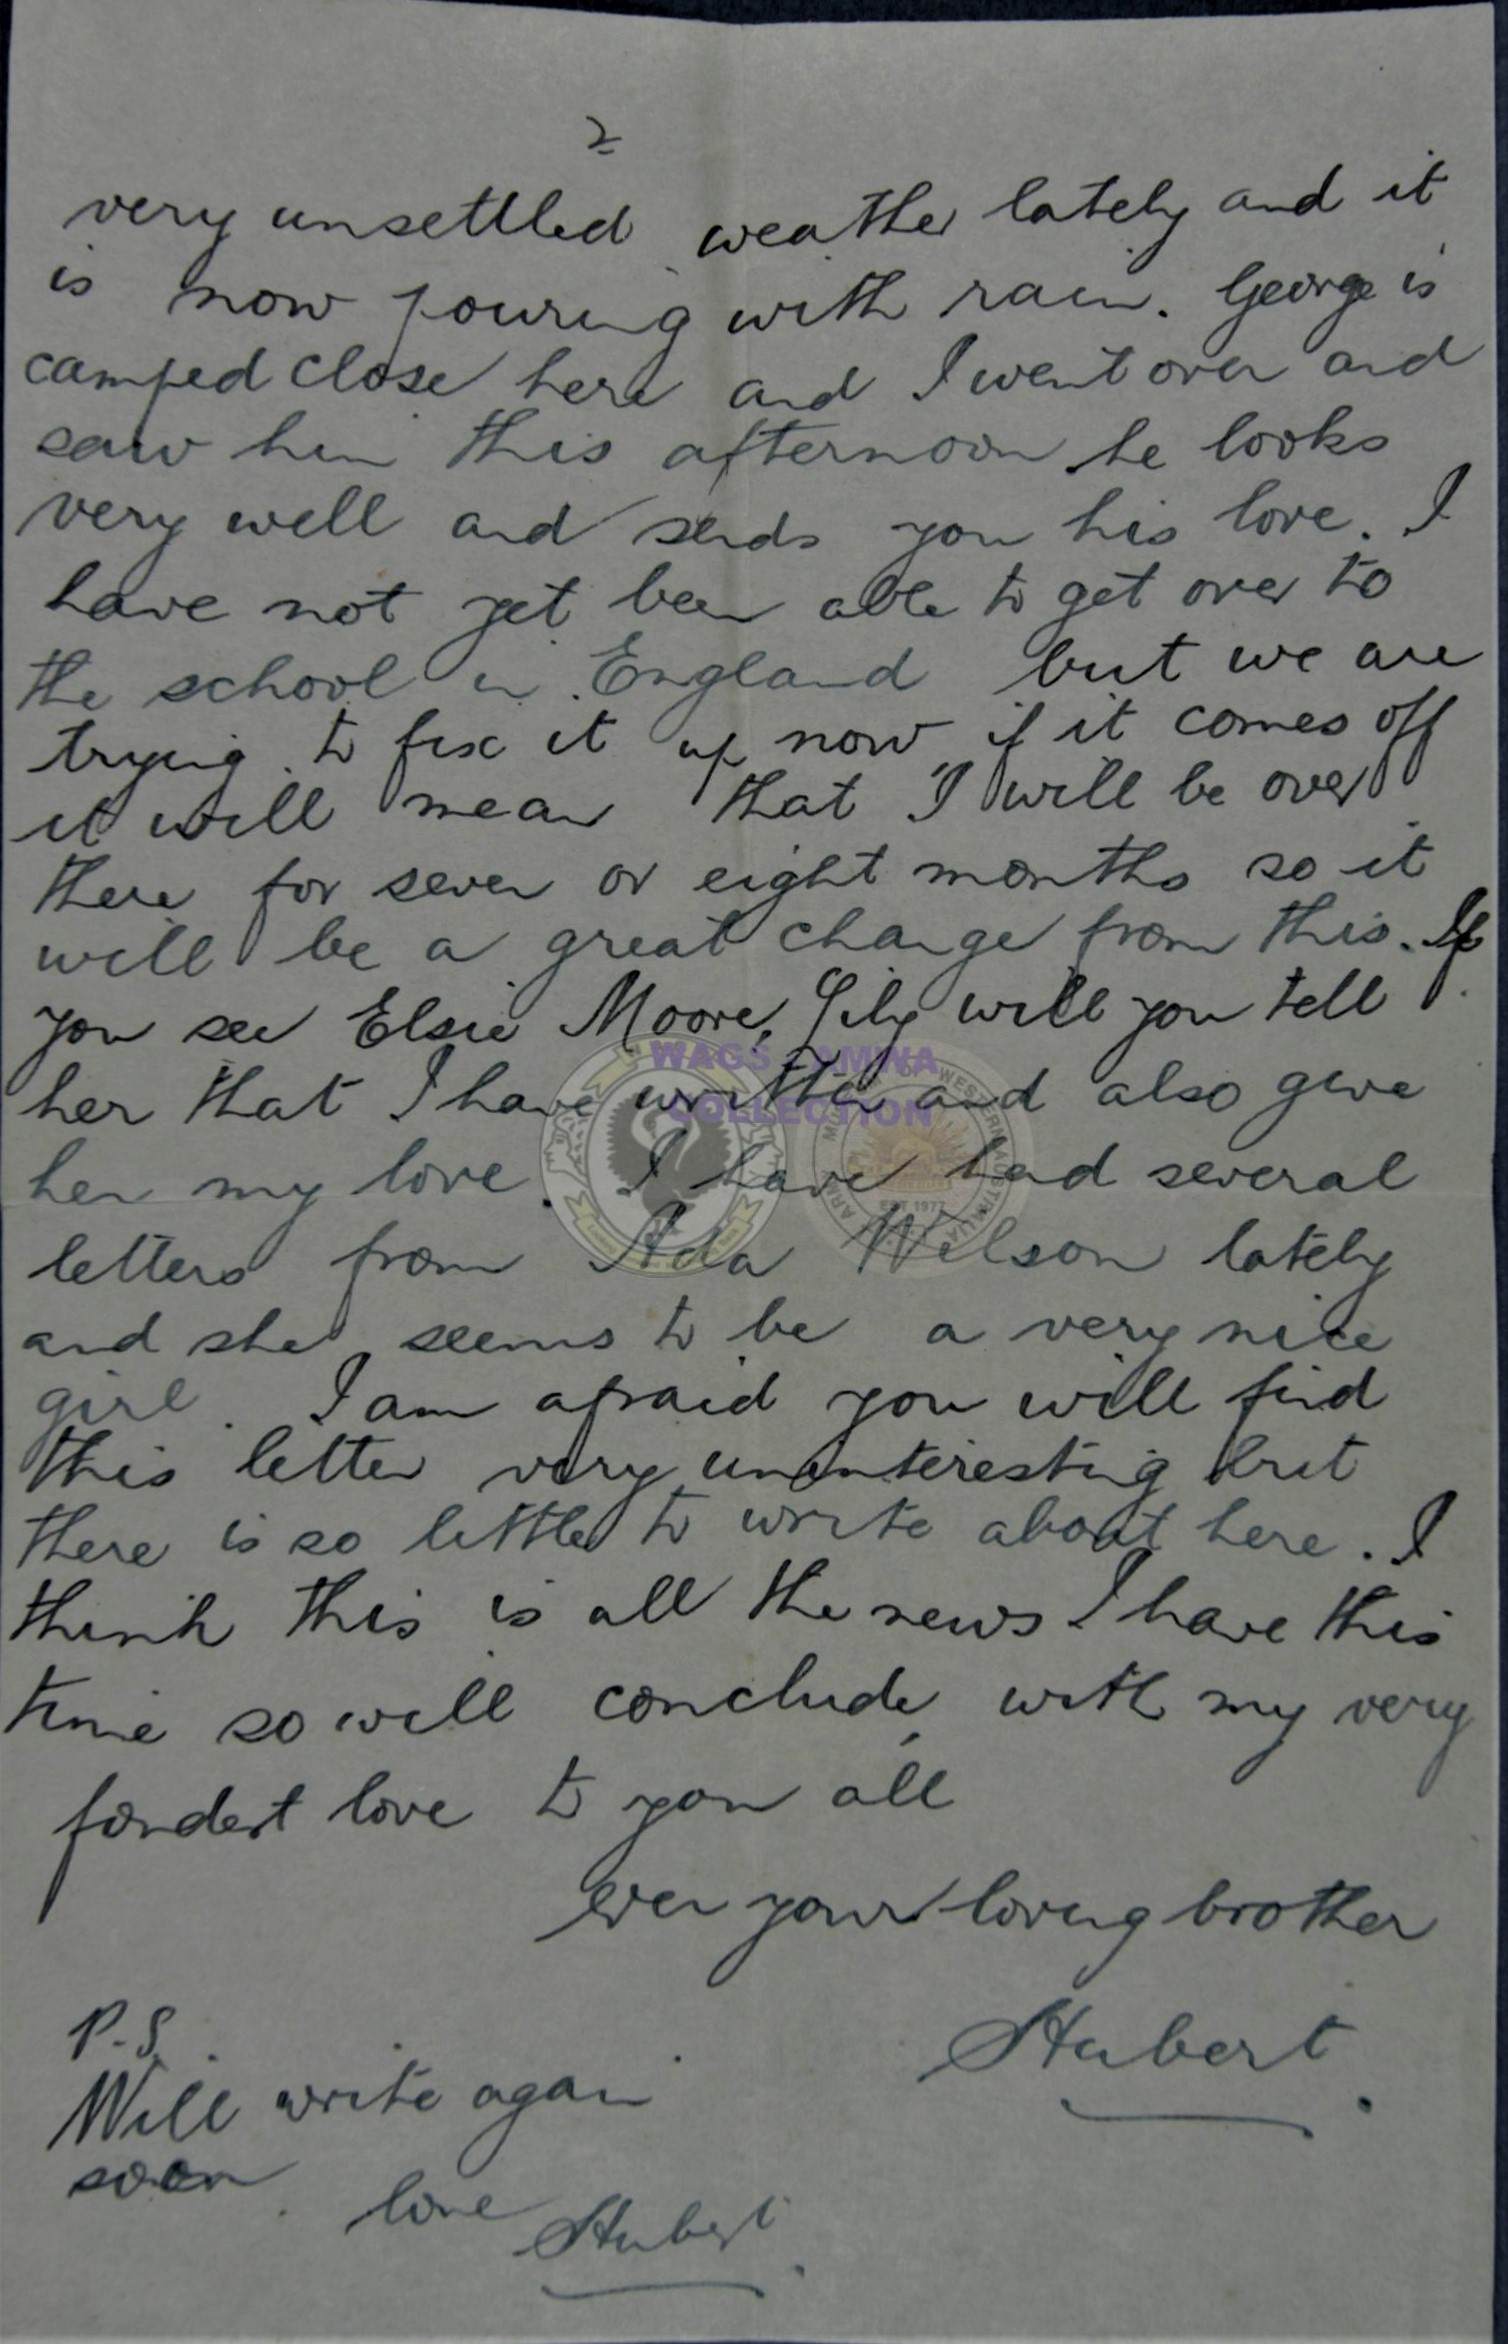 2
very unsettled weather lately and it
is now pouring with rain. George is
camped close here and I went over and
saw him this afternoon he looks
very well and sends you his love. I
have not yet been able to get over to
the school in England but we are
trying to fix it up now if it comes off
it will mean that I will be over
there for seven or eight months so it
will be a great change from this. If
you see Elsie Moore, Lily will you tell
her that I have written and also give
her my love. I have had several
letters from Ada Wilson lately
and she seems to be a very nice
girl. I am afraid you will find
this letter very uninteresting but
there is so little to write about here. I
think this is all the news I have this
time so will conclude with my very
fondest love to you all
ever your loving brother
Hubert.
P.S.
Will write again
soon.
love Hubert.
WAGS - AMWA
COLLECTION
WESTERN AUSTRALIA
EST 1977